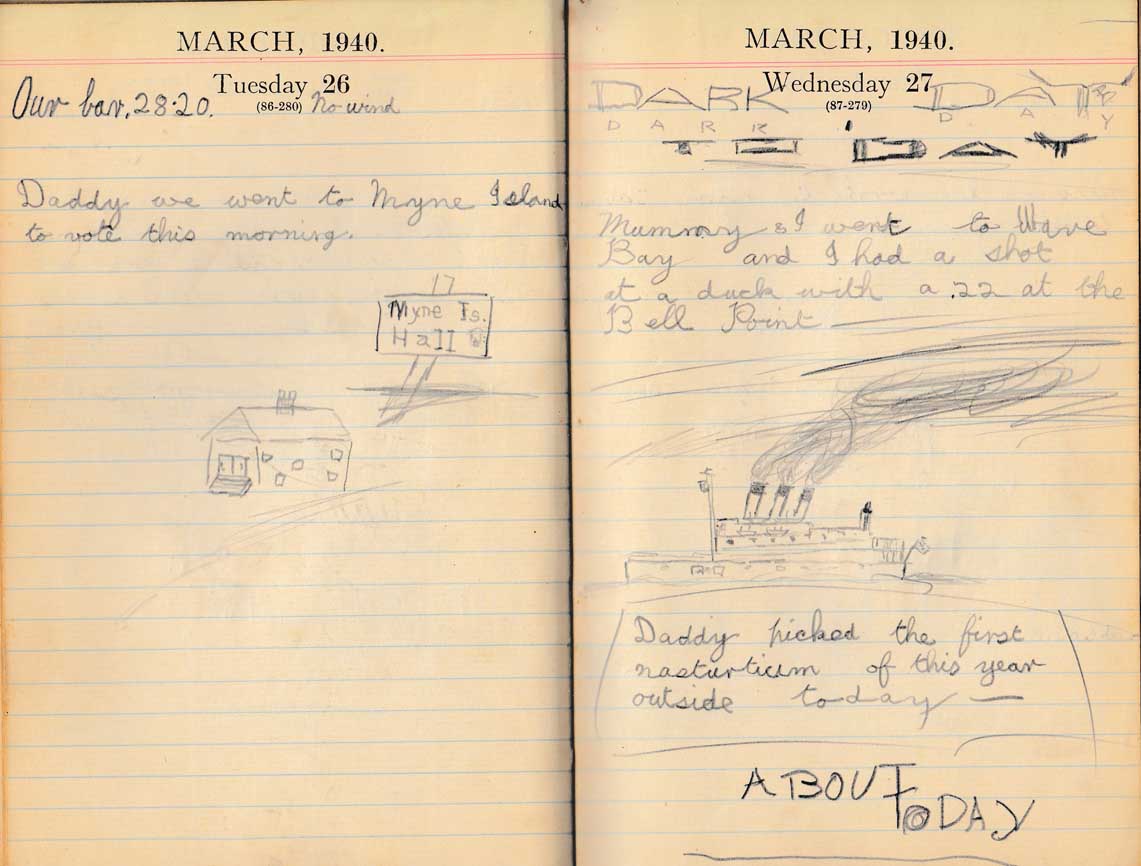 MARCH, 1940.
Tuesday 26
(86-280)
Our bar. 28.20. No wind
Daddy we went to Myne Island
to vote this morning.
17
Myne Is.
Hall
MARCH, 1940.
Wednesday 27
(87-279)
DARK DAY
D A R K D A Y
DAY
Mummy & I went to Wave
Bay and I had a shot
at a duck with a .22 at the
Bell Point —
Daddy picked the first
nasturticum of this year
outside today —
ABOUT
TODAY